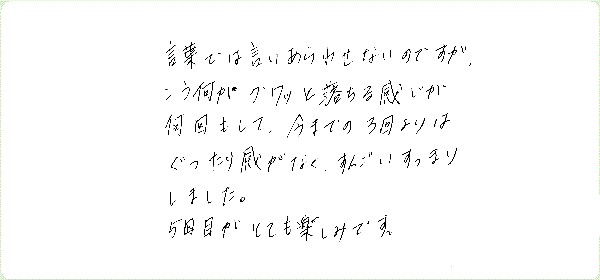 言葉では言いあらわせないのですが、
こう何かがブワッと落ちる感じが
何回もして、今までの3回よりは
ぐったり感がなく、すんごいすっきり
しました。
5回目がとても楽しみです